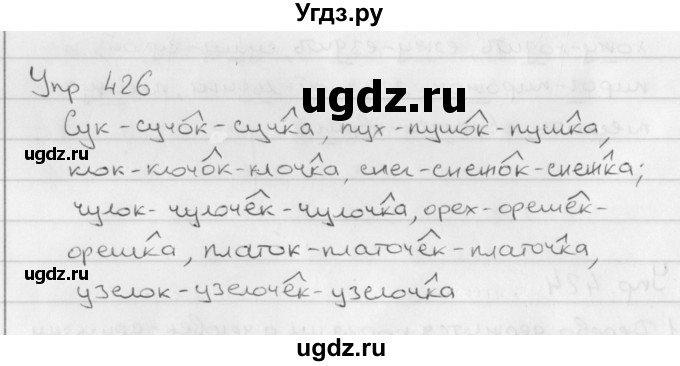 Угдз.ру
Упр 426
ugdz.ru
Сук - сучок - сучка, пух - пушок - пушка,
ugdz.ru
клок - клочок - клочка, снег - снежок - снежка;
чулок - чулочек - чулочка, орех - орешек -
орешка, платок - платочек - платочка,
ugdz.ru
узелок - узелочек - узелочка
ugdz.ru